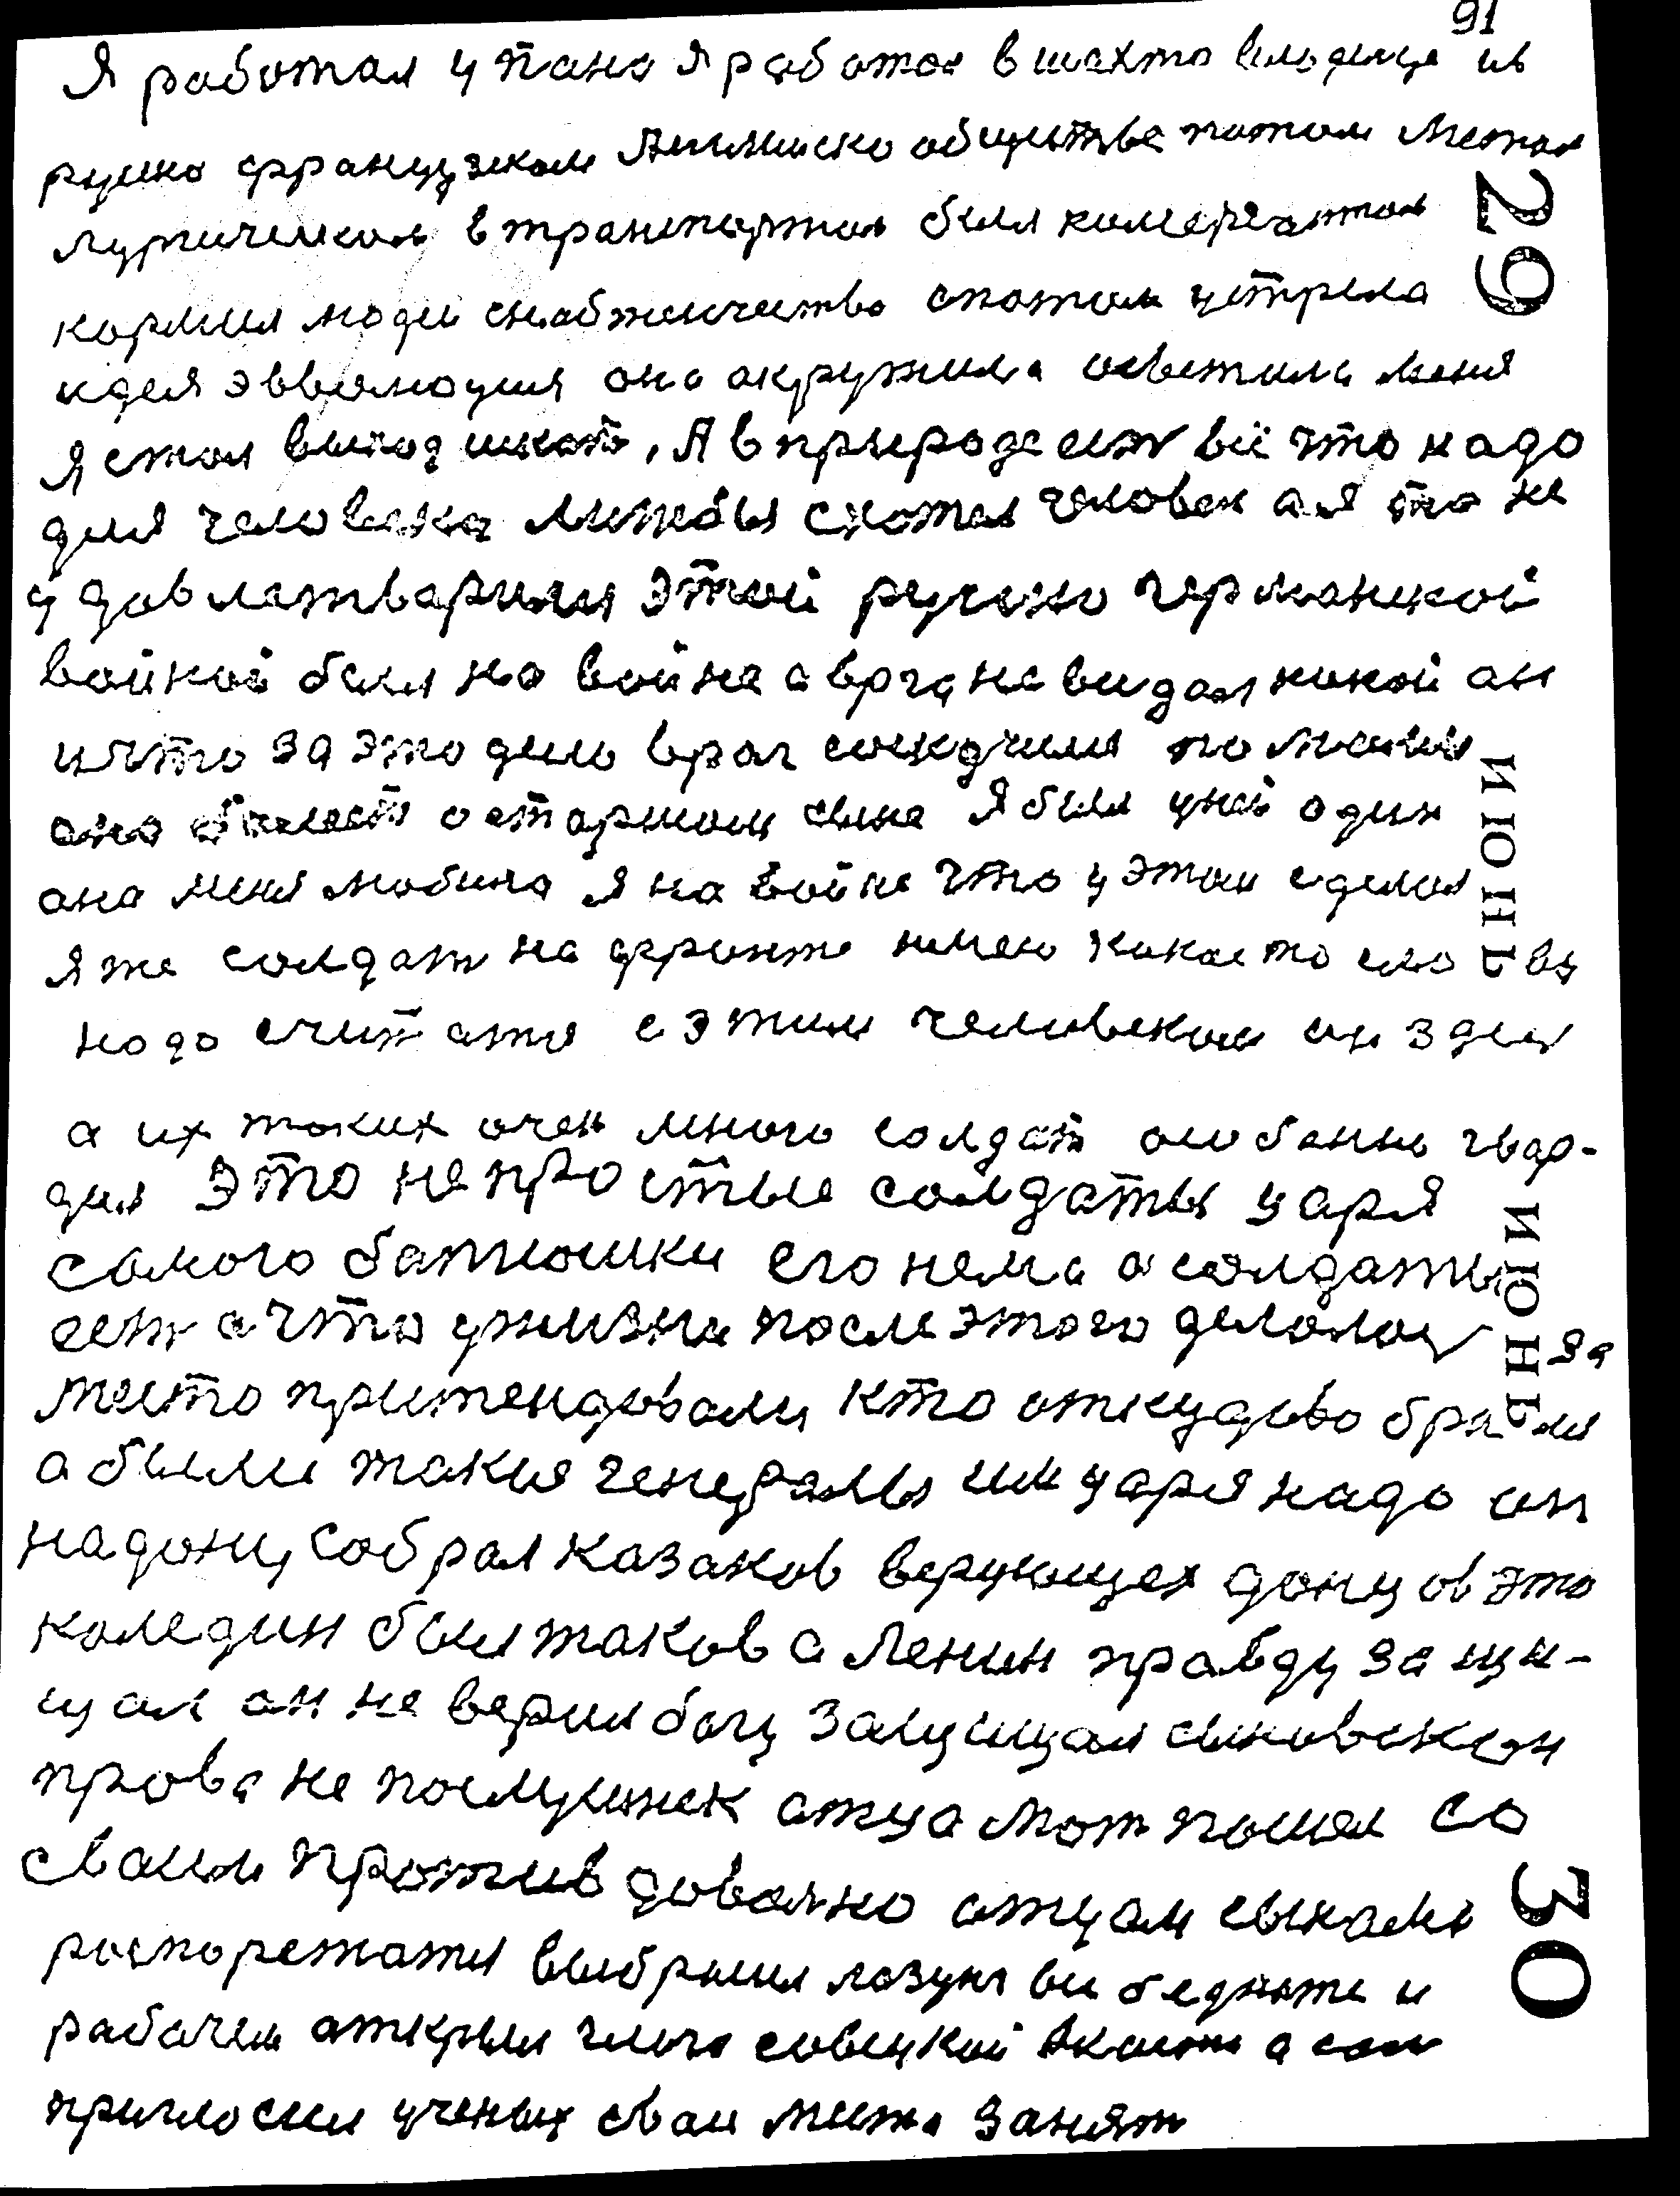 91
Я работал у пана я работал в шахто владенце ив
руско французком обществе потом Метал
лургическом в транспортом был комерсантом
кормил люди снабженчество опотом устрела
идея эвволюция она окружила осветила меня
Я стал выход искат, А в природе ест всё что надо
для человека лишбы схотел человек а я то не
удовлетварилля этой руско германской
войной был на войне а врага не видал никой он
и что за это дело враг
она о старшом сыне я был уней один
она меня любила я на войне что у этом сделал
я же солдат на фронте имею какое то
надо считатя с этим человеком он здес
а их таких очен много солдат особенно гвар-
дия это не простые солдаты царя
самого батюшки его нема а солдаты
ест а что ужизни после этого делалос за
место притендовали кто откудова брался
а были такие генералы им царя надо он
надону собрал казаков верующех донцов это
каледин был таков а Ленин правду защи-
щал он не верил богу защищал сыновскои
права не послушнек атца мат пошел со
сваим против доволно атцам сынамы
роспорежатя выбрасил лозунг ви бедноте и
рабочем аткрыл совецкой власти а сам
пригласил ученых сваи места занят
29
ИЮНЬ
ИЮНЬ
30